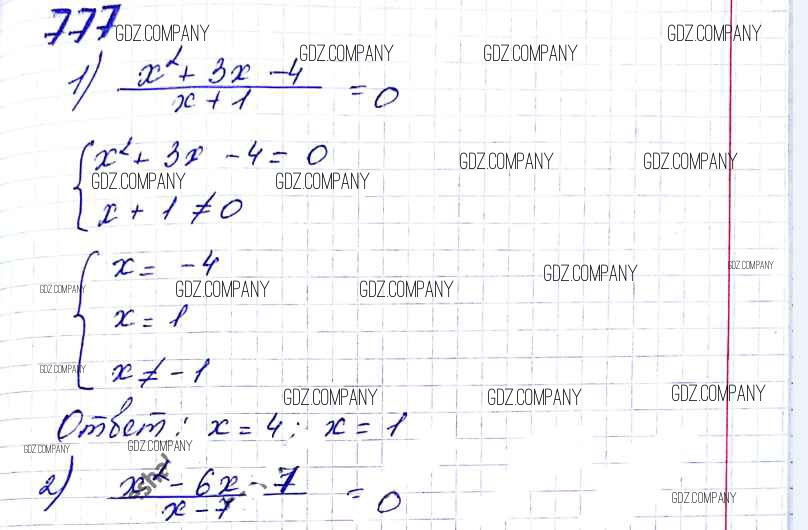 777 GDZ.COMPANY GDZ.COMPANY
GDZ.COMPANY GDZ.COMPANY
1) (x² + 3x - 4)/(x + 1) = 0
{ x² + 3x - 4 = 0
GDZ.COMPANY GDZ.COMPANY
GDZ.COMPANY GDZ.COMPANY
x + 1 ≠ 0
{ x = -4
GDZ.COMPANY GDZ.COMPANY
GDZ.COMPANY GDZ.COMPANY GDZ.COMPANY
x = 1
GDZ.COMPANY
x ≠ -1
GDZ.COMPANY GDZ.COMPANY GDZ.COMPANY
Ответ: x = 4; x = 1
GDZ.COMPANY GDZ.COMPANY
2) (x² - 6x - 7)/(x - 7) = 0
GDZ.COMPANY